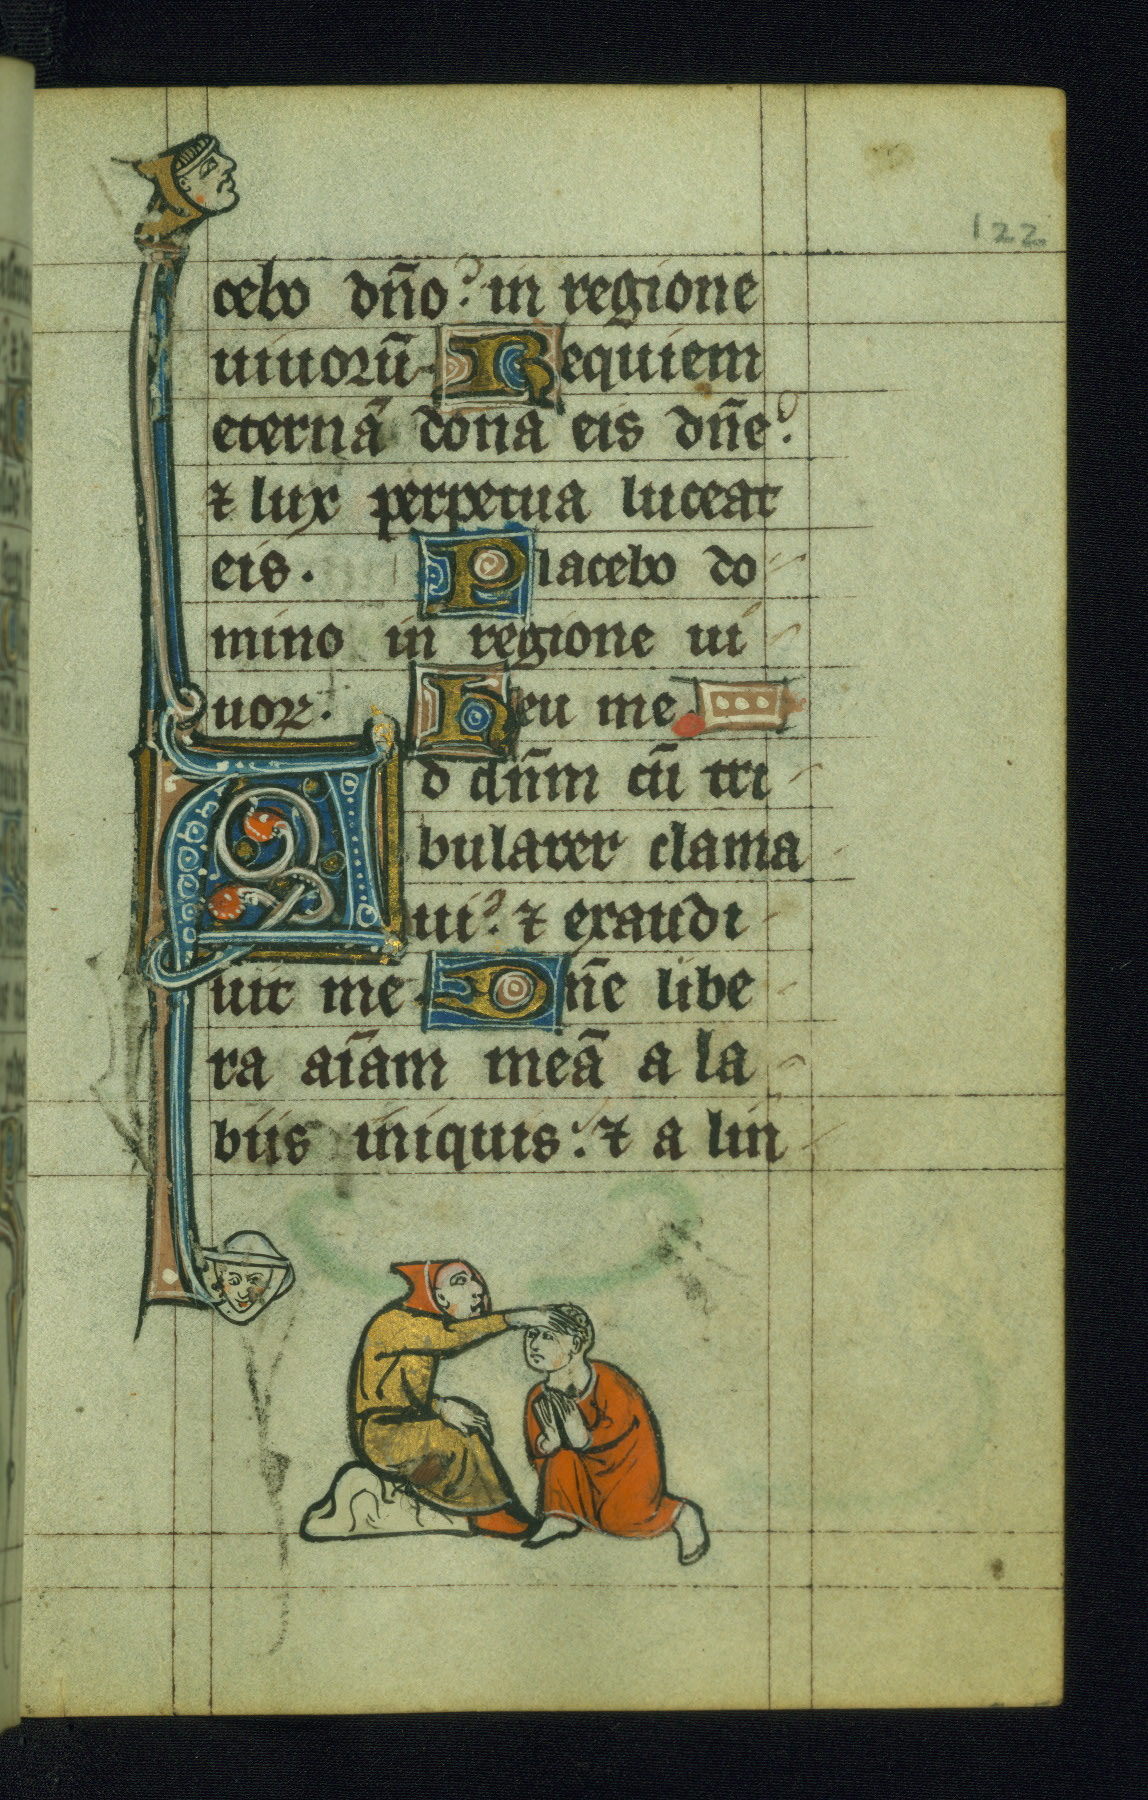 122
cebo dn̄o? in regione
uiuoꝛū Requiem
eternā dona eis dn̄e?
⁊ lux perpetua luceat
eis. Placebo do
mino in regione ui
uoꝛ. Heu me
Ad dn̄m cū tri
bularer clama
ui? ⁊ exaudi
uit me Dn̄e libe
ra aīam meā a la
biis iniquis: ⁊ a lin